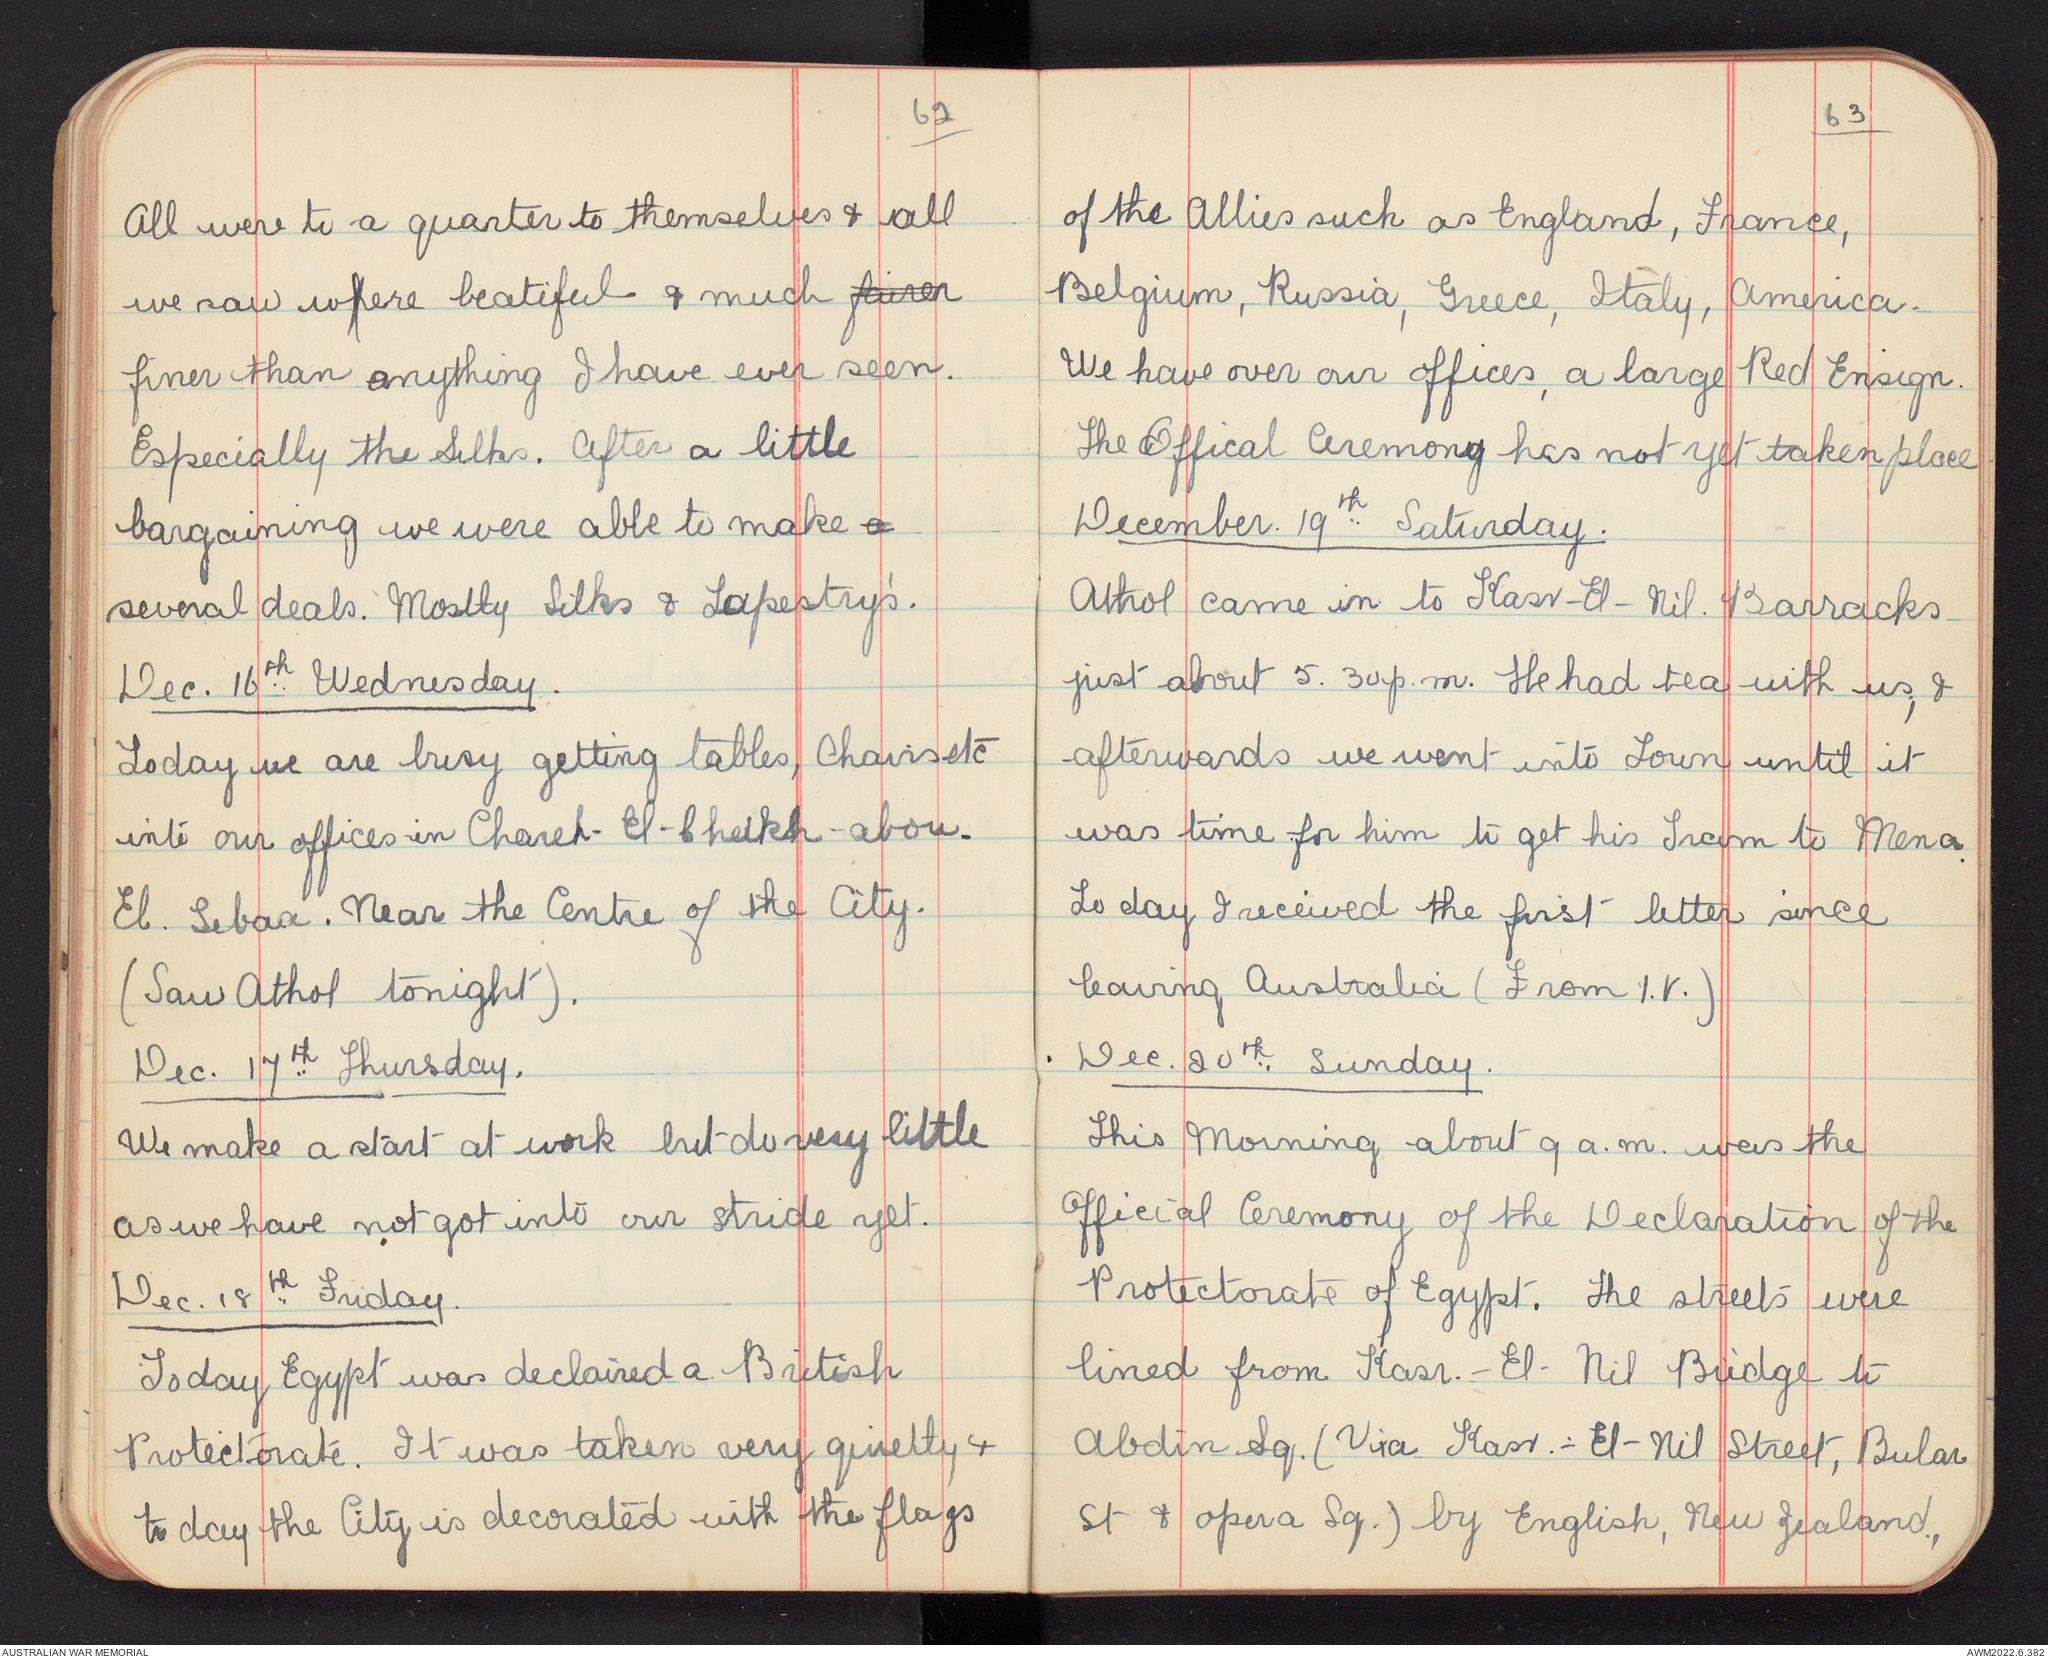 62
All were to a quarter to themselves & all
we saw where beatiful & much fairer
finer than anything I have ever seen.
Especially the Silks. After a little
bargaining we were able to make a
several deals. Mostly Silks & Tapestry's.
Dec. 16th Wednesday.
Today we are busy getting tables, Chairs etc
into our offices in Chareh-El-Cheikh-abou-
El. Sebaa. Near the Centre of the City.
(Saw Athol tonight).
Dec. 17th Thursday.
We make a start at work but do very little
as we have not got into our stride yet.
Dec. 18th Friday.
Today Egypt was declaired a British
Protectorate. It was taken very quietly &
to day the City is decorated with the flags
63
of the Allies such as England, France,
Belgium, Russia, Greece, Italy, America.
We have over our offices, a large Red Ensign.
The Offical Ceremony has not yet taken place
December. 19th Saturday.
Athol came in to Kasr-El-Nil. Barracks
just about 5.30 p.m. He had tea with us, &
afterwards we went into Town until it
was time for him to get his Tram to Mena.
To day I received the first letter since
leaving Australia (From I.V.)
Dec. 20th. Sunday.
This Morning about 9 a.m. was the
Official Ceremony of the Declaration of the
Protectorate of Egypt. The streets were
lined from Kasr.-El-Nil Bridge to
Abdin Sq. (Via Kasr.-El-Nil Street, Bulac
St & opera Sq.) by English, New Zealand,
AUSTRALIAN WAR MEMORIAL
AWM2022.6.382